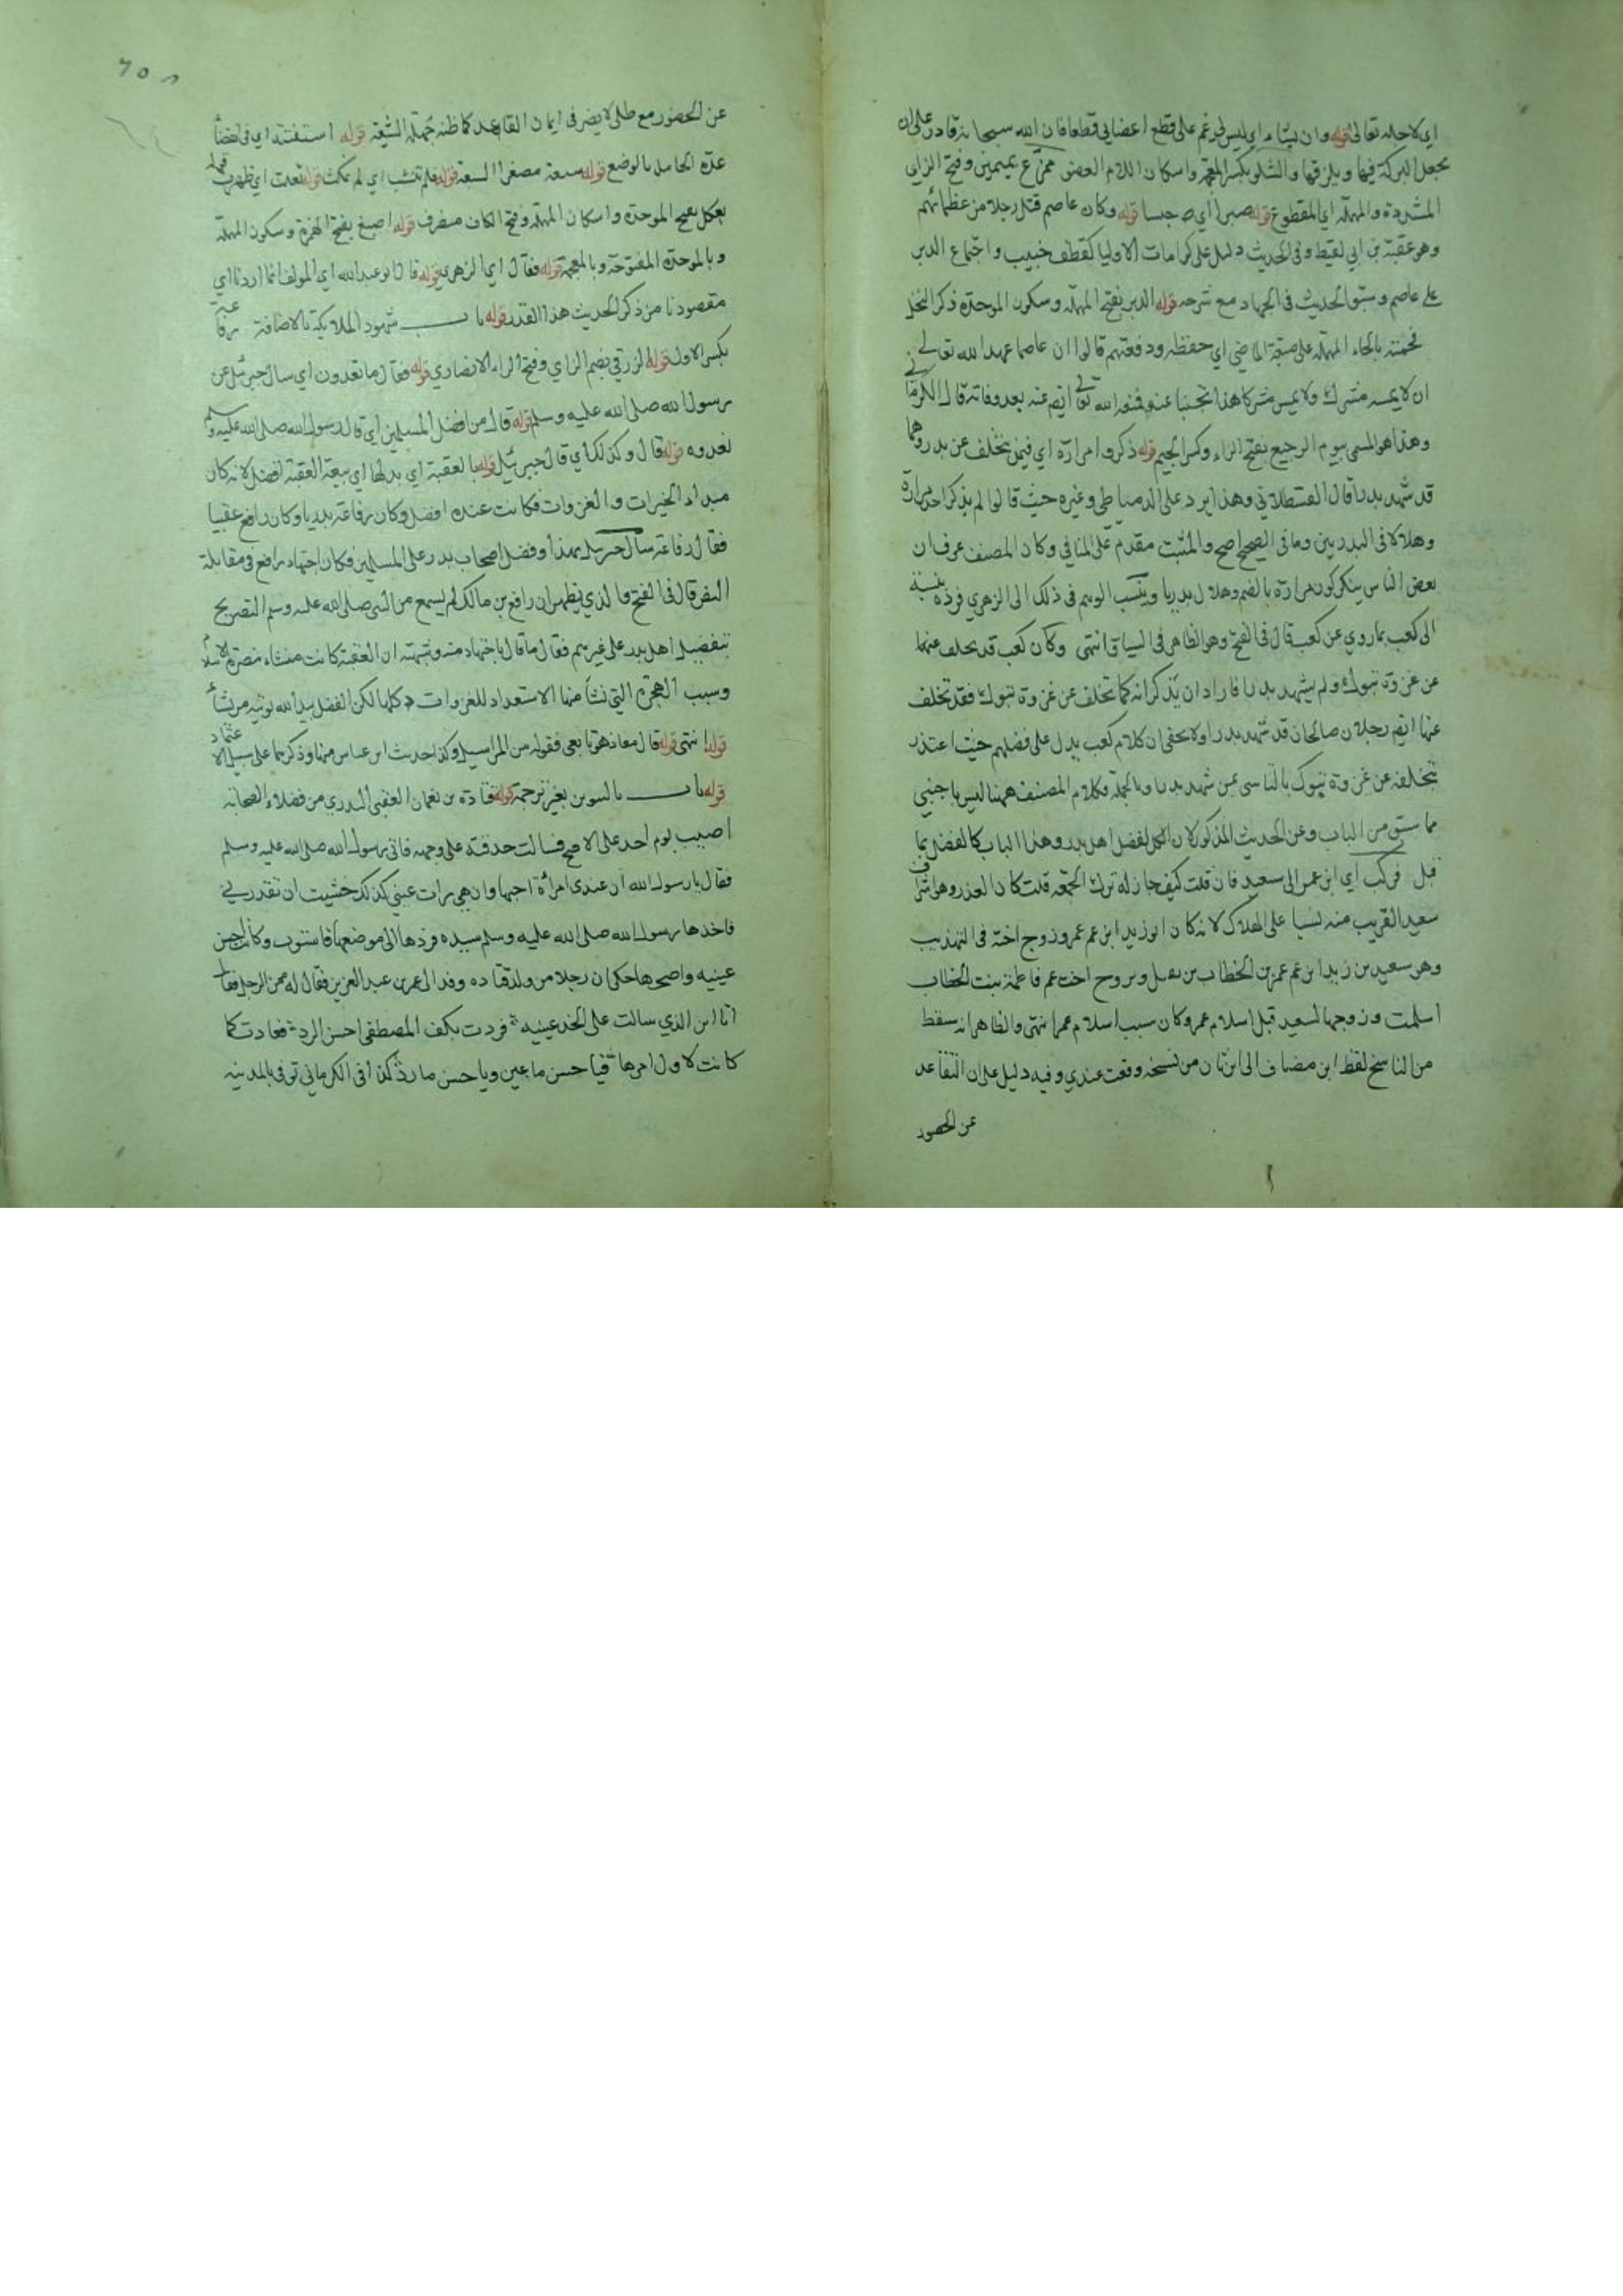 اي لاجله تعالى قوله وان يشاء اي ليس لي غم على قطع اعضائي قطعا فان الله سبحانه قادر على ان
يجعل البركة فيها ويلزقها والشلو بكسر المعجمة واسكان اللام العضو ممزع بميمين وفتح الزاي
المشددة والمهملة اي المقطوع قوله صبرا اي حبسا قوله وكان عاصم قتل رجلا من عظمائهم
وهو عقبة بن ابي لقيط وفي الحديث دليل على كرامات الاوليا كقطف خبيب واجتماع الدبر
على عاصم وسبق الحديث في الجهاد مع شرحه قوله الدبر بفتح المهملة وسكون الموحدة ذكر النحل
فحمته بالحاء المهملة على صيغة الماضي اي حفظه ودفعتهم قالوا ان عاصما عهد الله تعالى
ان لا يمسه مشرك ولا يمس مشركا هذا تجنبا عنه فمنعه الله تعالى ايضم عنه بعد وفاته قال الكرماني
وهذا هو المسمى بيوم الرجيع بفتح الراء وكسر الجيم قوله ذكروا مرارة اي فيمن تخلف عن بدر وهما
قد شهد بدرا قال القسطلاني وهذا يرد على الدمياطي وغيره حيث قالوا لم يذكر احد مرارة
وهلالا في البدريين وما في الصحيح اصح والمثبت مقدم على المنافي وكان المصنف عرف ان
بعض الناس ينكر كون مرارة بالضم وهلال بدريا وينسب الوهم في ذلك الى الزهري فرده بنسبته
الى كعب بما روي عن كعب قال في الفتح وهو الظاهر في السياق انتهى وكان كعب قد تخلف عنهما
عن غزوة تبوك ولم يشهد بدرا فاراد ان يذكر انه كما تخلف عن غزوة تبوك فقد تخلف
عنها ايضم رجلان صالحان قد شهد بدرا ولا يخفى ان كلام كعب يدل على فضلهم حيث اعتذر
بتخلفه عن غزوة تبوك بالتاسي عن شهد بدرا وبالجملة فكلام المصنف ههنا ليس باجنبي
مما سبق من الباب وعن الحديث المذكور لان الكل لفضل اهل بدر وهذا الباب كالفضل بما
قبل فركب اي ابن عمر الى سعيد فان قلت كيف جاز له ترك الجمعة قلت كان العذر وهو اشراف
سعيد القريب منه نسبا على الهلاك لانه كان ابو زيد ابن عم عمر وزوج اخته في التهذيب
وهو سعيد بن زيد ابن عم عمر بن الخطاب بن نفيل وتزوج اخت عم فاطمة بنت الخطاب
اسلمت وزوجها سعيد قبل اسلام عمر وكان سبب اسلام عمر انتهى والظاهر انه سقط
من الناسخ لفظ ابن مضاف الى ابن ثان من نسخة وقعت عندي وفيه دليل على ان التقاعد
عن الحضور
عن الحضور مع طلي لا يضر في ايمان القاعد كما ظنه جهلة الشيعة قوله استفتته اي في انقضاء
عدة الحامل بالوضع قوله سبيعة مصغر السبعة قوله فلم تنشب اي لم تمكث قوله تعلت اي طهرت قوله
بعكل بفتح الموحدة واسكان المهملة وفتح الكاف منصرف قوله اصبغ بفتح الهمزة وسكون المهملة
وبالموحدة المفتوحة وبالمعجمة قوله فقال اي الزهري قوله قال ابو عبد الله اي المولف انما اردنا اي
مقصودنا من ذكر الحديث هذا القدر قوله باب شهود الملايكة بالاضافة رفاعة
بكسر الاول قوله الزرقي بضم الزاي وفتح الراء الانصاري قوله فقال ما تعدون اي سال جبرئيل عن
رسول الله صلى الله عليه وسلم قوله قال من افضل المسلمين اي قال رسول الله صلى الله عليه وسلم
نعدوه قوله قال وكذلك اي قال جبرئيل قوله بالعقبة اي بدلها اي بيعة العقبة افضل لانه كان
مبدأ الخيرات والغزوات فكانت عنده افضل وكان رفاعة بدريا وكان رافع عقبيا
فقال رفاعة سأل جبريل بهذا وفضل اصحاب بدر على المسلمين فكان اجتهاد رافع في مقابلة
النص قال في الفتح والذي يظهر ان رافع بن مالك لم يسمع من النبي صلى الله عليه وسلم التصريح
بتفضيل اهل بدر على غيرهم فقال ما قال باجتهاد منه وشبهته ان العقبة كانت منشاء نصرة الاسلام
وسبب الهجرة التي نشأ منها الاستعداد للغزوات كلها لكن الفضل بيد الله يوتيه من يشأ
قوله انتهى قوله قال معاذ هو تابعي فقوله من المراسيل وكذا حديث ابن عباس منها وذكرهما على سبيل الاعتماد
قوله باب بالتنوين بغير ترجمة قوله قتادة بن نعمان العقبي البدري من فضلاء الصحابة
اصيب يوم احد على الاصح فسالت حدقته على وجهه فاتى رسول الله صلى الله عليه وسلم
فقال يا رسول الله ان عندي امرأة احبها وان هي رات عيني كذلك خشيت ان تقذرني
فاخذها رسول الله صلى الله عليه وسلم بيده فردها الى موضعها فاستوت وكانت احسن
عينيه واصحها حكي ان رجلا من ولد قتادة وفد الى عمر بن عبد العزيز فقال له ممن الرجل فقال
انا ابن الذي سالت على الخد عينيه فردت بكف المصطفى احسن الرد فعادت كما
كانت لاول امرها فيا حسن ما عين ويا حسن ما رد كذا في الكرماني توفي بالمدينة